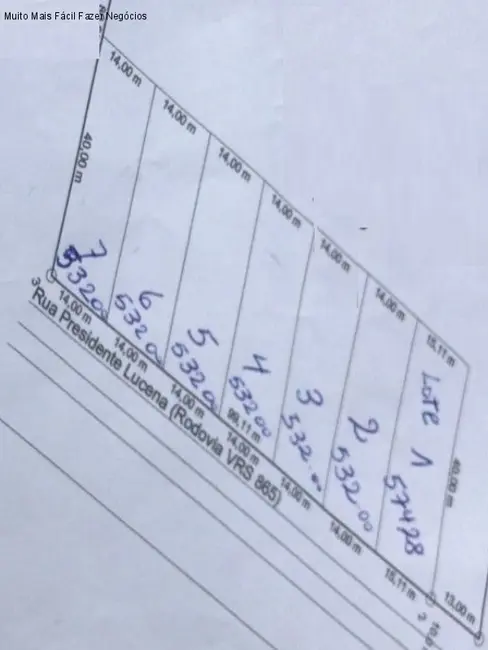 Muito Mais Fácil Fazer Negócios
14,00 m
14,00 m
14,00 m
14,00 m
14,00 m
14,00 m
15,11 m
40,00 m
7
532,00
6
532,00
5
532,00
4
532,00
3
532,00
2
532,00
LOTE 1
574,28
40,00 m
14,00 m
14,00 m
14,00 m
99,11 m
14,00 m
14,00 m
14,00 m
15,11 m
13,00 m
3
2
Rua Presidente Lucena (Rodovia VRS 865)